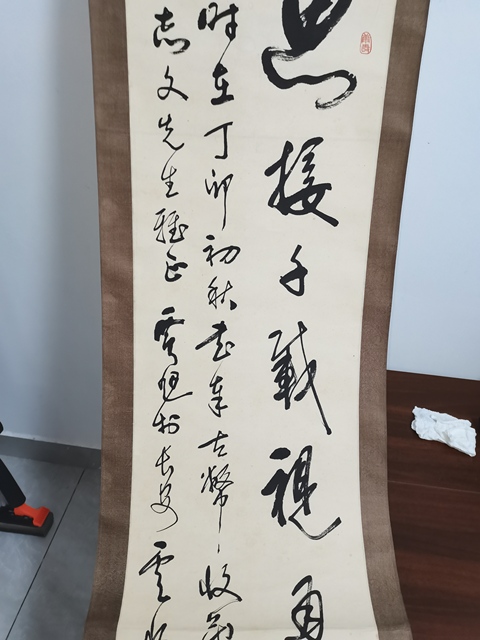 思接千載視
時在丁卯初秋書奉古幣收
志文先生雅正 於長安